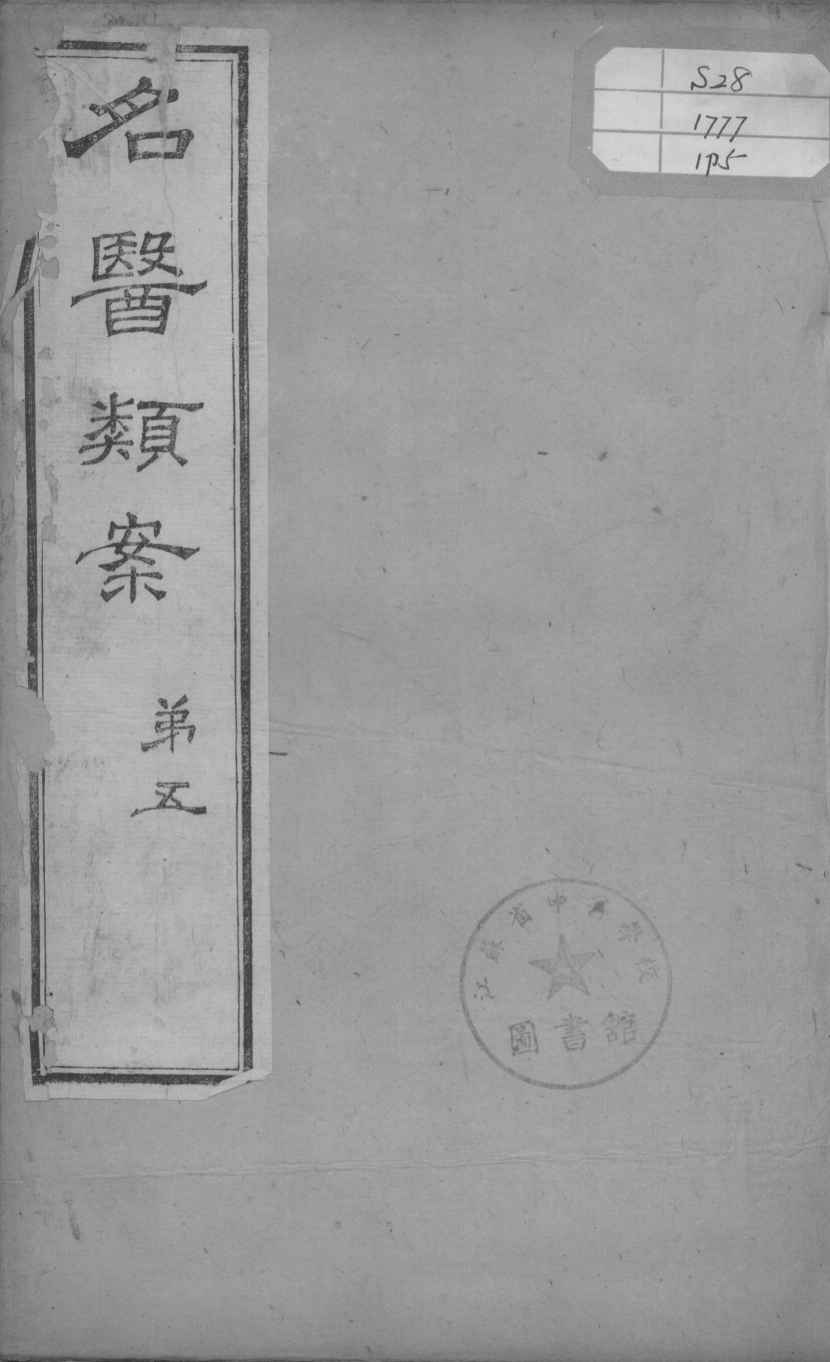 名醫類案
弟五
S28
1777
1P5
江蘇省中醫學校
圖書舘